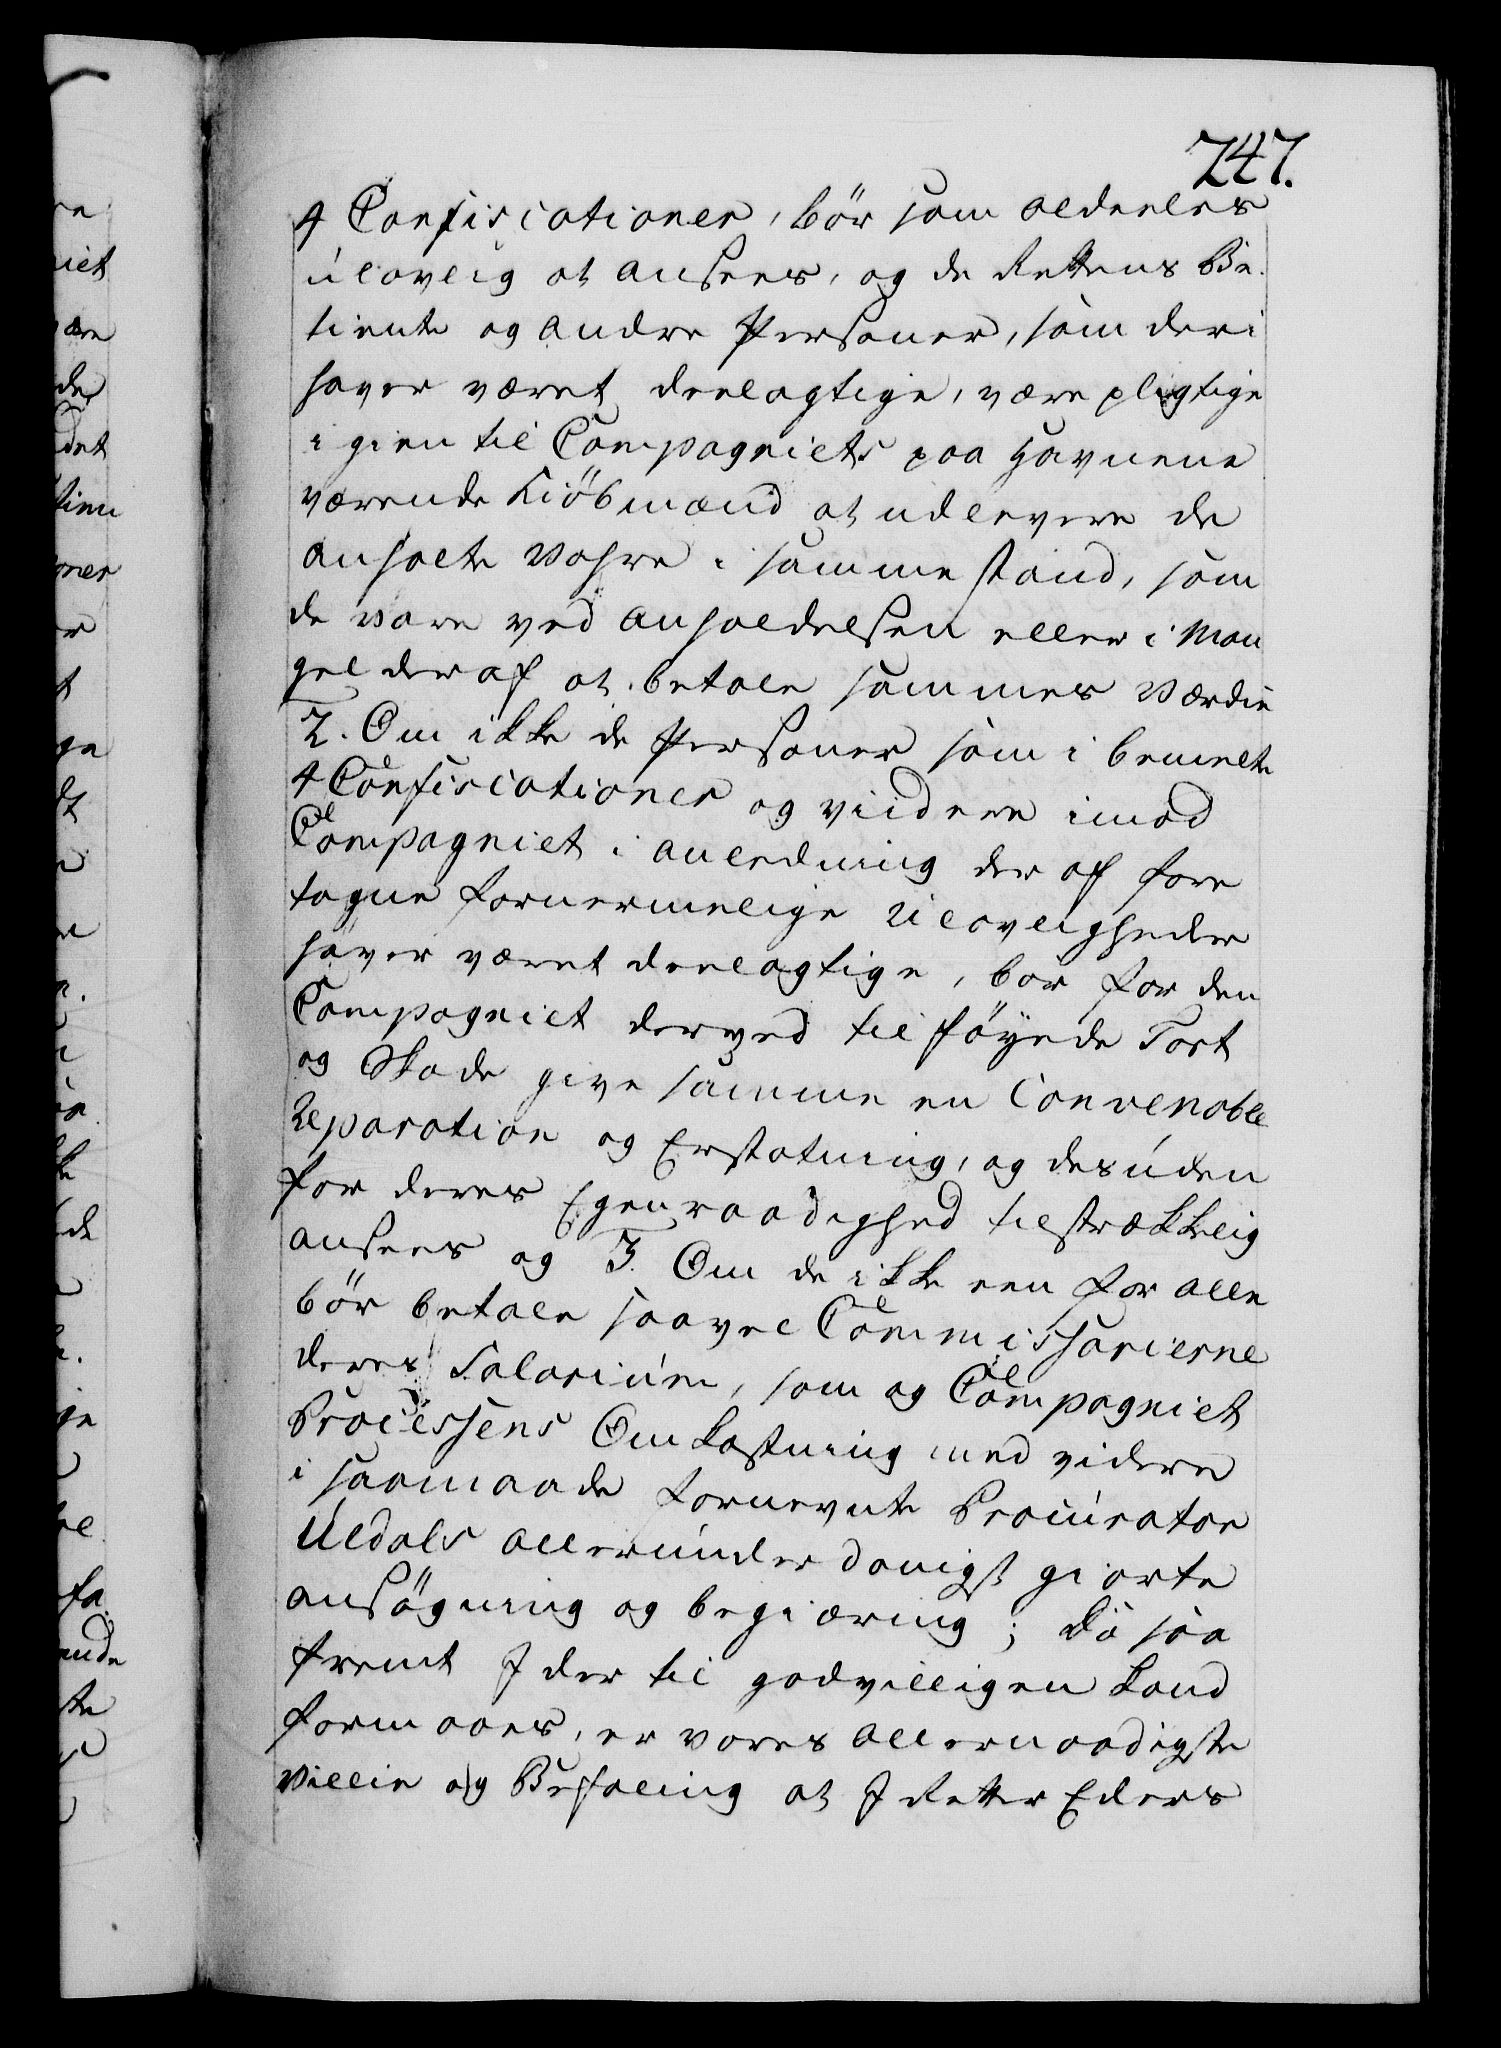 747.
4 Confiscationer, bör som aldeeles
ulovlig at ansees, og de Rettens Be-
tiente og andre Personer, som deri
haver været deelagtige, være pligtige
igien til Compagniets paa Havnene
værende Kiöbmænd at udlevere de
anholte Vahre i samme stand, som
de vare ved anholdelsen eller i Man
gel deraf at betale sammes Værdie
2. Om ikke de Personer som i bemelte
4 Confiscationer og viidere imod
Compagniet i anledning der af fore
tagne fornermelige Ulovligheder
haver været deelagtige, bör for den
Compagniet derved tilföyede Tort
og Skade give samme en Convenable
Reparation og Erstatning, og desuden
for deres Egenraadighed tilstrækkelig
ansees og 3. Om de ikke een for alle
bör betale saavel Commissarierne
deres Salarium, som og Compagniet
Processens Omkostning med videre
i saamaade fornevnte Procurator
Uldals allerunderdanigst giorte
ansögning og begiæring; Da saa
fremt I der til godvilligen kand
formaaes, er vores allernaadigste
Villie og Befaling at I Retter Eders